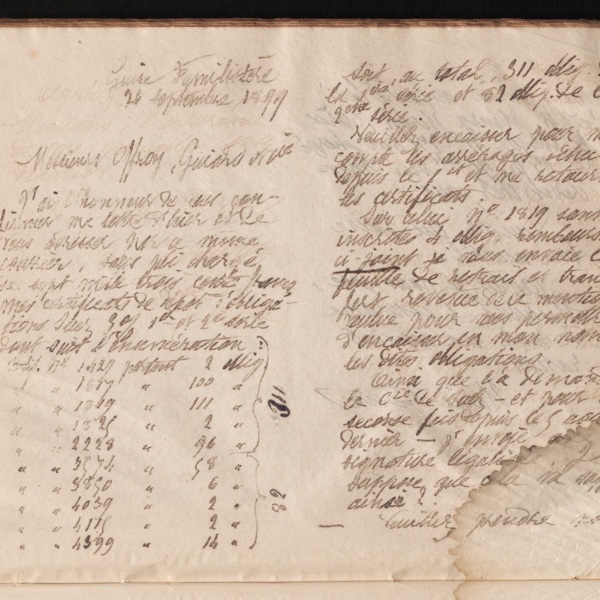 Guise Familistère
28 septembre 1899
Messieurs Offroy, Guiard & Cie
J'ai l'honneur de vous con-
firmer ma lettre d'hier et de
vous adresser par ce même
courrier, sous pli chargé
mes certificats de dépôt : obliga-
tions Suez 5% 1re et 2e série
dont suit l'énumération :
Certif. No 1429 portant 2 oblig
" " 1877 " 100 "
" " 1819 " 111 "
" " 1825 " 2 "
" " 2228 " 96 "
311
" " 3574 " 58 "
" " 3850 " 6 "
" " 4039 " 2 "
" " 4175 " 2 "
" " 4399 " 14 "
82
soit, au total, 311 oblig.
la 1re série et 82 oblig. de
2eme série.
Veuillez encaisser pour m
compte les arrérages échu
depuis le 1er et me retour
les certificats.
Sur celui no 1819 sont
inscrites 4 oblig. rembours
ci-joint je vous envoie
feuille de retrait et tran
fert revêtue de ma
pour vous permett
d'encaisser en mon nom
les dites obligations.
Ainsi que l'a demandé
la Cie de Suez - et pour
seconde fois depuis le 5 août
dernier - j'envoie
signature légalisée. Je
suppose que cela va
ainsi ?
Veuillez prendre